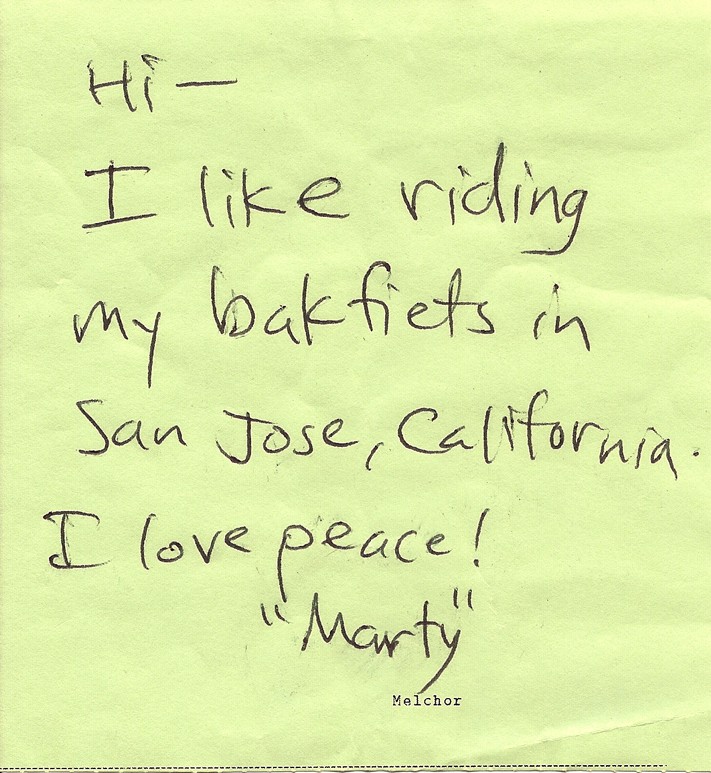 Hi —
I like riding
my bakfiets in
San Jose, California.
I love peace!
"Marty"
Melchor